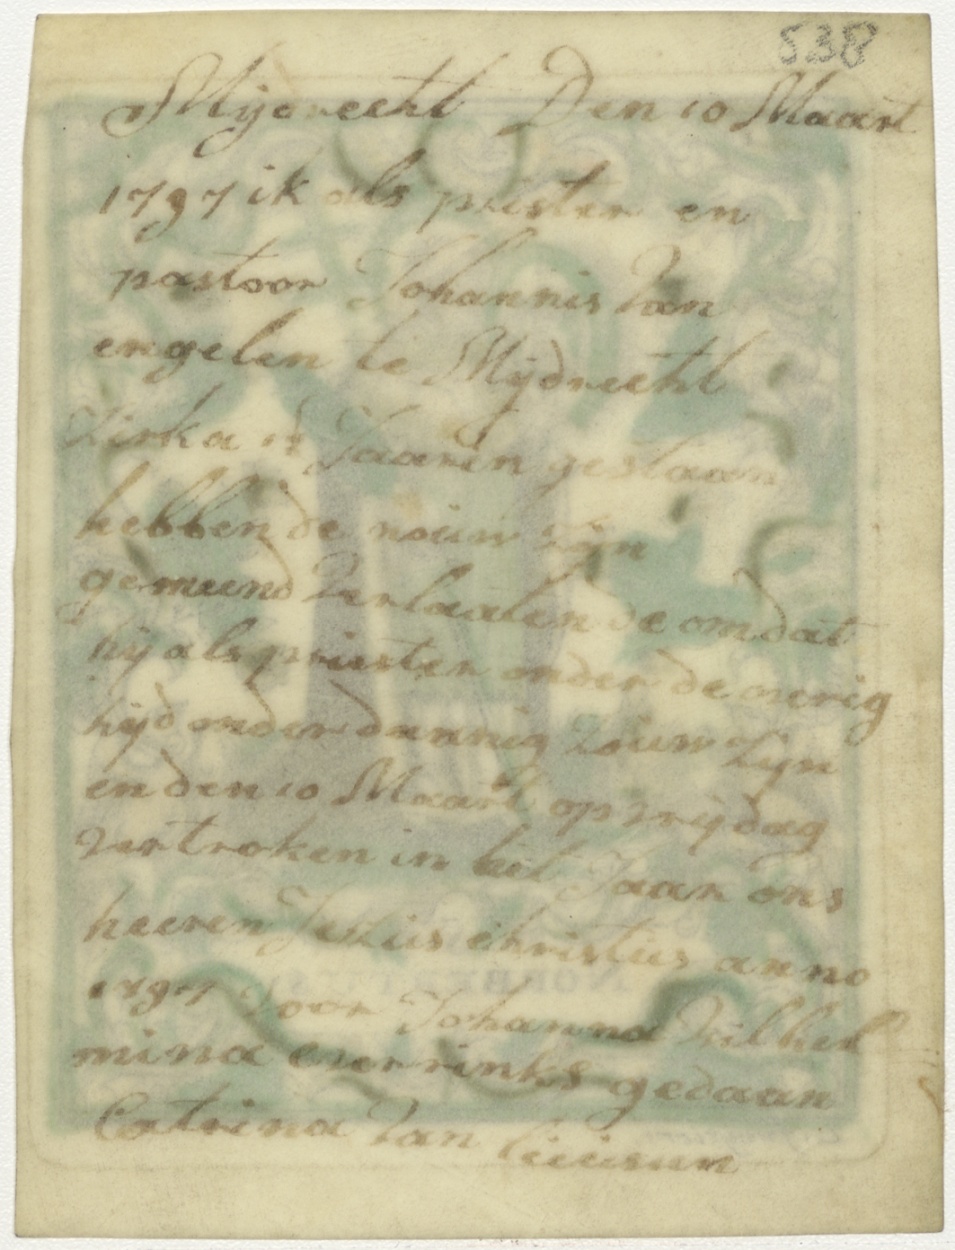 538
Mijdrecht Den 10 Maart
1797 ik als prister en
pastoor Johannis Van
engelen te Mijdrecht
Zirka Jaaren gestaan
hebben de nouw zijn
gemeend Verlaaten de omdat
hij als priester onder de overig
hijd onderdannig Zouw Zijn
en den 10 Maart op vrijdag
Vertroken in het Jaar ons
heeren Jezius christius anno
1797 door Johanna Wilhel
mina everrinks gedaan
Catrina Van
NORBERTUS